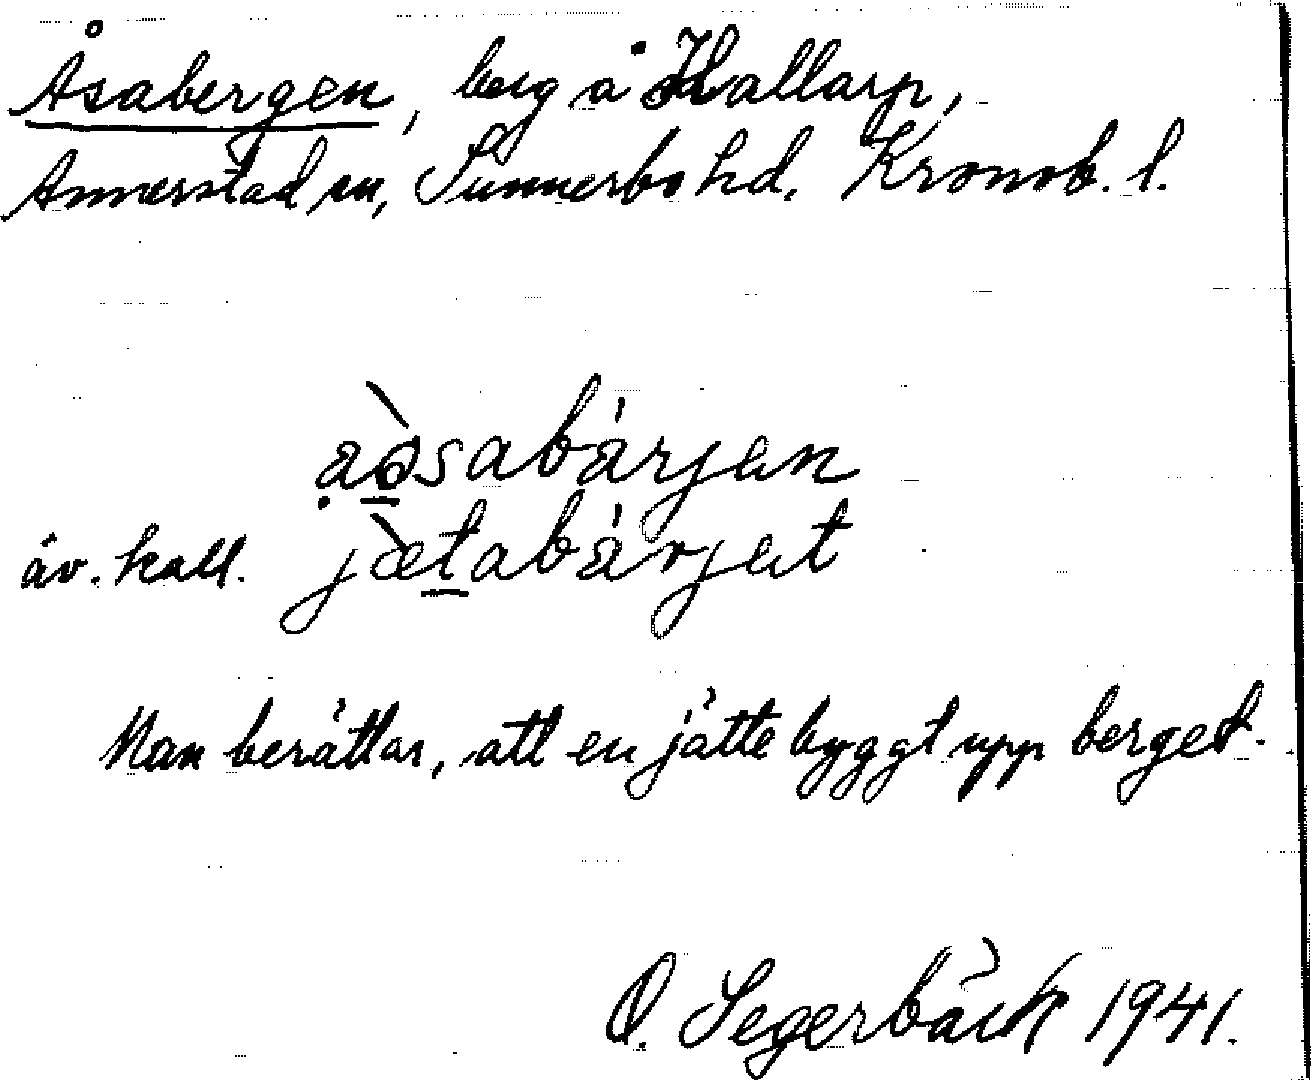 Åsabergen, berg å Hallarp,
Annerstad sn, Sunnerbo hd. Kronob. l.
àosabárjen
äv. kall. jætabárjet
Man berättar, att en jätte byggt upp berget.
O. Segerbäck 1941.